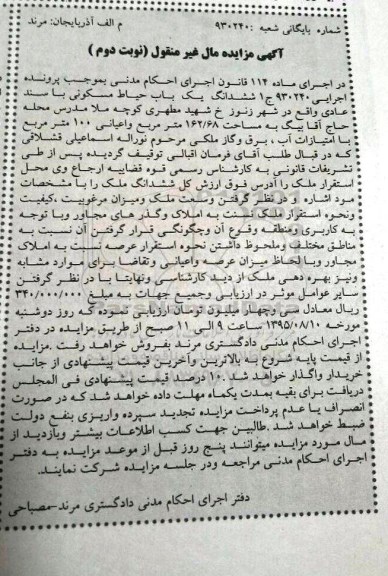 شماره بایگانی شعبه :۹۳۰۲۴۰ م الف آذربایجان: مرند
آگهی مزایده مال غیر منقول (نوبت دوم )
در اجرای ماده ۱۱۴ قانون اجرای احکام مدنی بموجب پرونده
اجرایی ۹۳۰۲۴۰ ج۱ ششدانگ یک باب حیاط مسکونی با سند
عادی واقع در شهر زنوز خ شهید مطهری کوچه ملا مدرس محله
حاج آقا بیگ به مساحت ۱۶۲/۶۸ متر مربع واعیانی ۱۰۰ متر مربع
با امتیازات آب ، برق وگاز ملکی مرحوم نوراله اسماعیلی قشلاقی
که در قبال طلب آقای فرمان اقبالی توقیف گردیده پس از طی
تشریفات قانونی به کارشناس رسمی قوه قضاییه ارجاع وی محل
استقرار ملک را آدرس فوق ارزش کل ششدانگ ملک را با مشخصات
مود اشاره از در نظر گرفتن وسعت ملک ومیزان مرغوبیت ،کیفیت
ونحوه استقرار ملک نسبت به املاک وگذر های مجاور وبا توجه
به کاربری ومنطقه وقوع آن وچگونگی قرار گرفتن آن نسبت به
مناطق مختلف وملحوظ داشتن نحوه استقرار عرصه نسبت به املاک
مجاور وبا لحاظ میزان عرصه واعیانی وتقاضا برای موارد مشابه
ونیز بهره دهی ملک از دید کارشناسی ونهایتا با در نظر گرفتن
سایر عوامل موثر در ارزیابی وجمیع جهات به مبلغ ۳۴۰/۰۰۰/۰۰۰
ریال معادل سی وچهار میلیون تومان ارزیابی نموده که روز دوشنبه
مورخه ۱۳۹۵/۰۸/۱۰ ساعت ۹ الی ۱۱ صبح از طریق مزایده در دفتر
اجرای احکام مدنی دادگستری مرند بفروش خواهد رفت .مزایده
از قیمت پایه شروع به بالاترین وآخرین قیمت پیشنهادی از جانب
خریدار واگذار خواهد شد .۱۰ درصد قیمت پیشنهادی فی المجلس
دریافت برای بقیه بمدت یکماه مهلت داده خواهد شد که در صورت
انصراف یا عدم پرداخت مزایده تجدید سپرده واریزی بنفع دولت
ضبط خواهد شد .طالبین جهت کسب اطلاعات بیشتر وبازدید از
مال مورد مزایده میتوانند پنج روز قبل از موعد مزایده به دفتر
اجرای احکام مدنی مراجعه ودر جلسه مزایده شرکت نمایند.
دفتر اجرای احکام مدنی دادگستری مرند-مصباحی